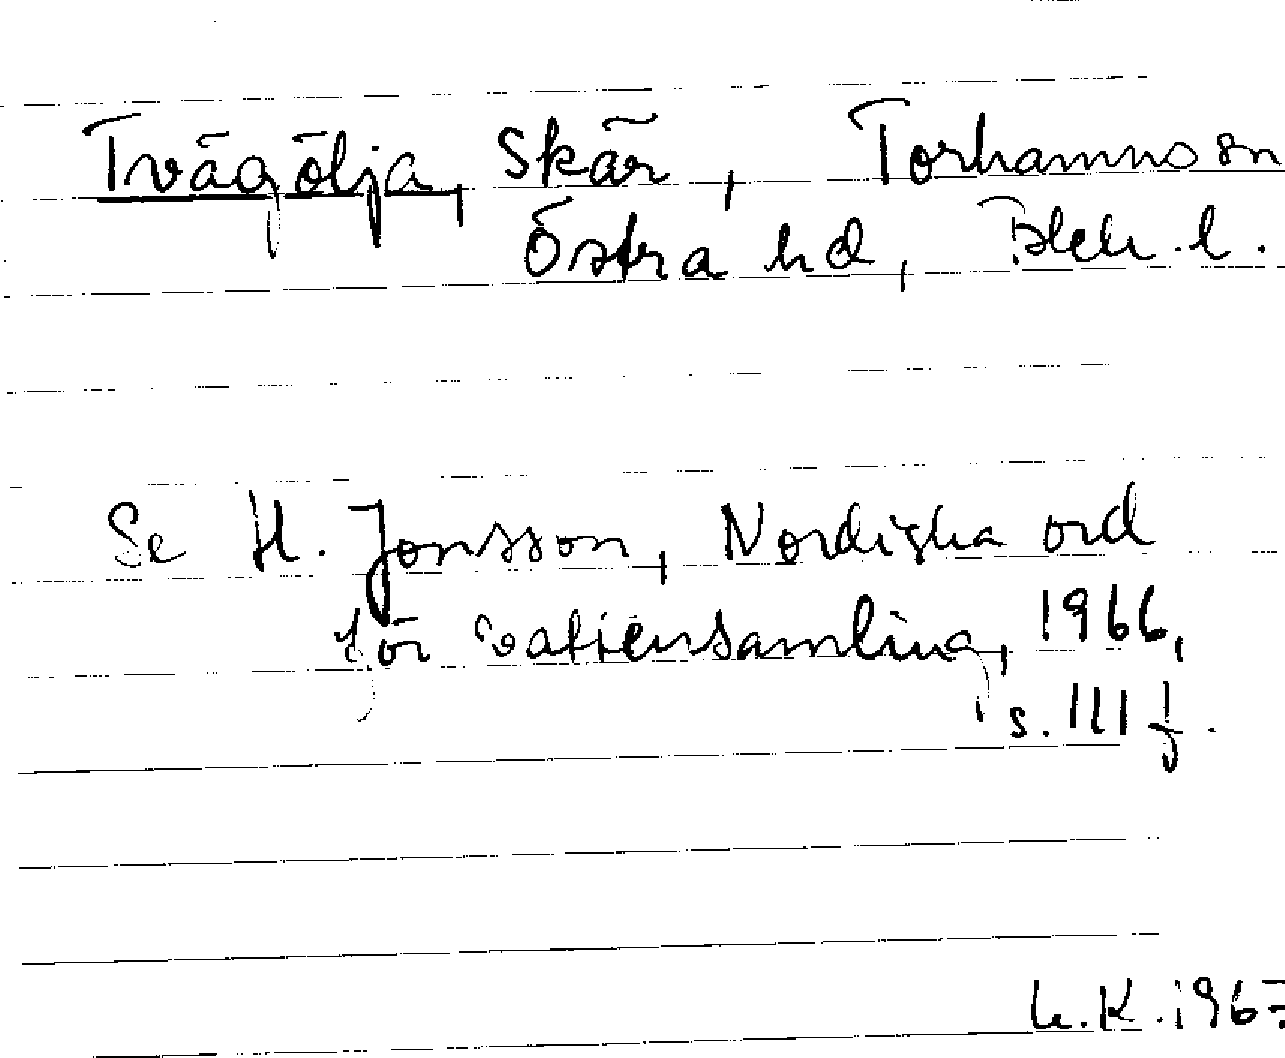 Tvägölja, Skär, Torhamns sn
Östra hd, Blek. l.
Se H. Jonsson, Nordiska ord
för vattensamling, 1966,
s. 111 f.
K. 1967